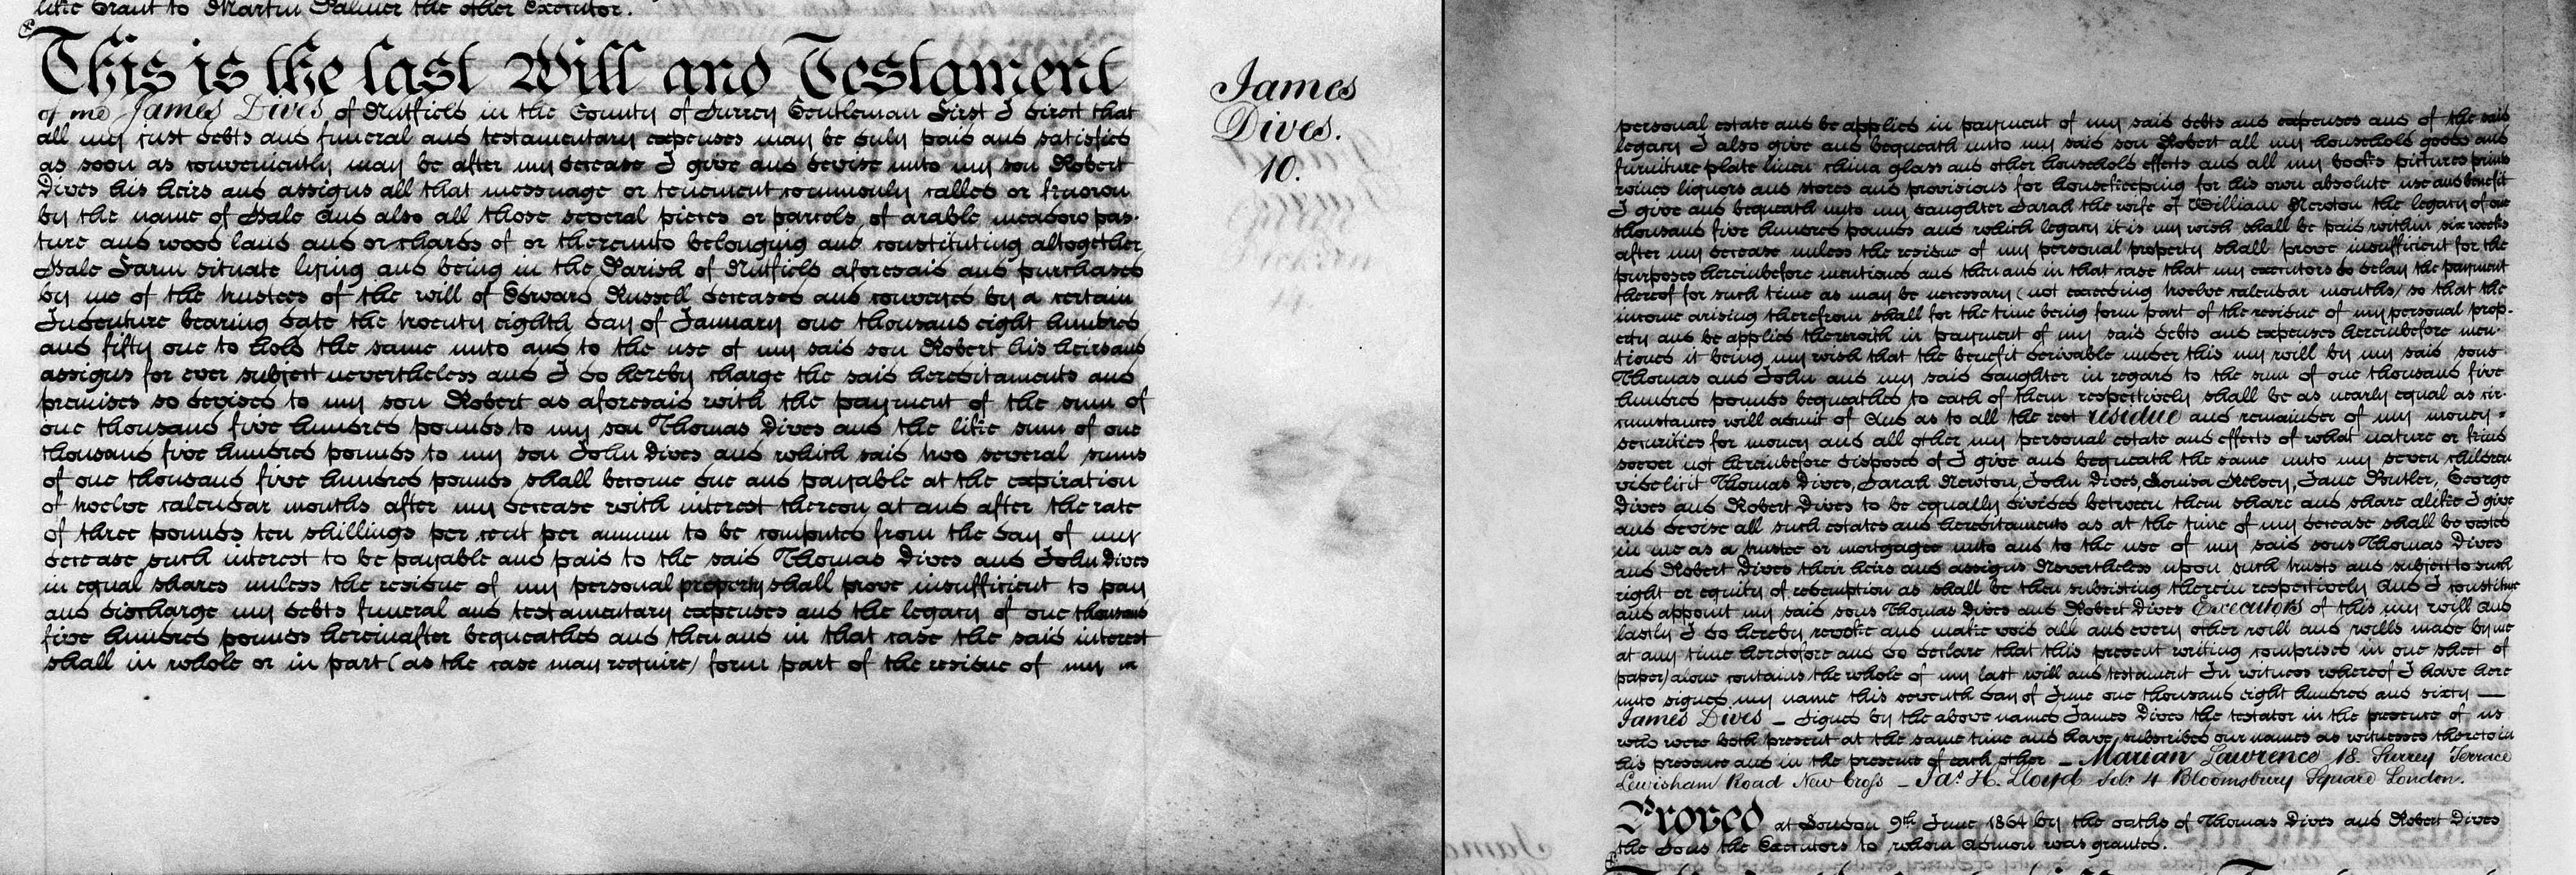 like Grant to Martin Palmer the other Executor.
This is the last Will and Testament
of me James Dives of Nutfield in the County of Surrey Gentleman First I direct that
all my just debts and funeral and testamentary expenses may be duly paid and satisfied
as soon as conveniently may be after my decease I give and devise unto my son Robert
Dives his heirs and assigns all that messuage or tenement commonly called or known
by the name of Hale And also all those several pieces or parcels of arable meadow pas-
ture and wood land and orchards of or thereunto belonging and constituting altogether
Hale Farm situate lying and being in the Parish of Nutfield aforesaid and purchased
by me of the trustees of the will of Edward Russell deceased and conveyed by a certain
Indenture bearing date the twenty eighth day of January one thousand eight hundred
and fifty one to hold the same unto and to the use of my said son Robert his heirs and
assigns for ever subject nevertheless and I do hereby charge the said hereditaments and
premises so devised to my son Robert as aforesaid with the payment of the sum of
one thousand five hundred pounds to my son Thomas Dives and the like sum of one
thousand five hundred pounds to my son John Dives and which said two several sums
of one thousand five hundred pounds shall become due and payable at the expiration
of twelve calendar months after my decease with interest thereon at and after the rate
of three pounds ten shillings per cent per annum to be computed from the day of my
decease such interest to be payable and paid to the said Thomas Dives and John Dives
in equal shares unless the residue of my personal property shall prove insufficient to pay
and discharge my debts funeral and testamentary expenses and the legacy of one thousand
five hundred pounds hereinafter bequeathed and then and in that case the said interest
shall in whole or in part (as the case may require) form part of the residue of my
James
Dives.
10.
personal estate and be applied in payment of my said debts and expenses and of the said
legacy I also give and bequeath unto my said son Robert all my household goods and
furniture plate linen china glass and other household effects and all my books pictures prints
wines liquors and stores and provisions for housekeeping for his own absolute use and benefit
I give and bequeath unto my daughter Sarah the wife of William Newton the legacy of one
thousand five hundred pounds and which legacy it is my wish shall be paid within six weeks
after my decease unless the residue of my personal property shall prove insufficient for the
purposes hereinbefore mentioned and then and in that case that my executors do delay the payment
thereof for such time as may be necessary (not exceeding twelve calendar months) so that the
income arising therefrom shall for the time being form part of the residue of my personal prop-
erty and be applied therewith in payment of my said debts and expenses hereinbefore men-
tioned it being my wish that the benefit derivable under this my will by my said sons
Thomas and John and my said daughter in regard to the sum of one thousand five
hundred pounds bequeathed to each of them respectively shall be as nearly equal as cir-
cumstances will admit of And as to all the rest residue and remainder of my money
securities for money and all other my personal estate and effects of what nature or kind
soever not hereinbefore disposed of I give and bequeath the same unto my seven children
videlicit Thomas Dives, Sarah Newton, John Dives, Louisa Kelsey, Jane Butler, George
Dives and Robert Dives to be equally divided between them share and share alike I give
and devise all such estates and hereditaments as at the time of my decease shall be vested
in me as a trustee or mortgagee unto and to the use of my said sons Thomas Dives
and Robert Dives their heirs and assigns Nevertheless upon such trusts and subject to such
right or equity of redemption as shall be then subsisting therein respectively And I constitute
and appoint my said sons Thomas Dives and Robert Dives Executors of this my will and
lastly I do hereby revoke and make void all and every other will and wills made by me
at any time heretofore and do declare that this present writing comprised in one sheet of
paper) alone contains the whole of my last will and testament In witness whereof I have here
unto signed my name this seventh day of June one thousand eight hundred and sixty —
James Dives — Signed by the above named James Dives the testator in the presence of us
who were both present at the same time and have subscribed our names as witnesses thereto in
his presence and in the presence of each other — Marian Lawrence 18. Surrey Terrace
Lewisham Road New Cross — Jas. H. Lloyd Solr. 4 Bloomsbury Square London.
Proved at London 9th June 1864 by the oaths of Thomas Dives and Robert Dives
the Sons the Executors to whom Admon was granted.